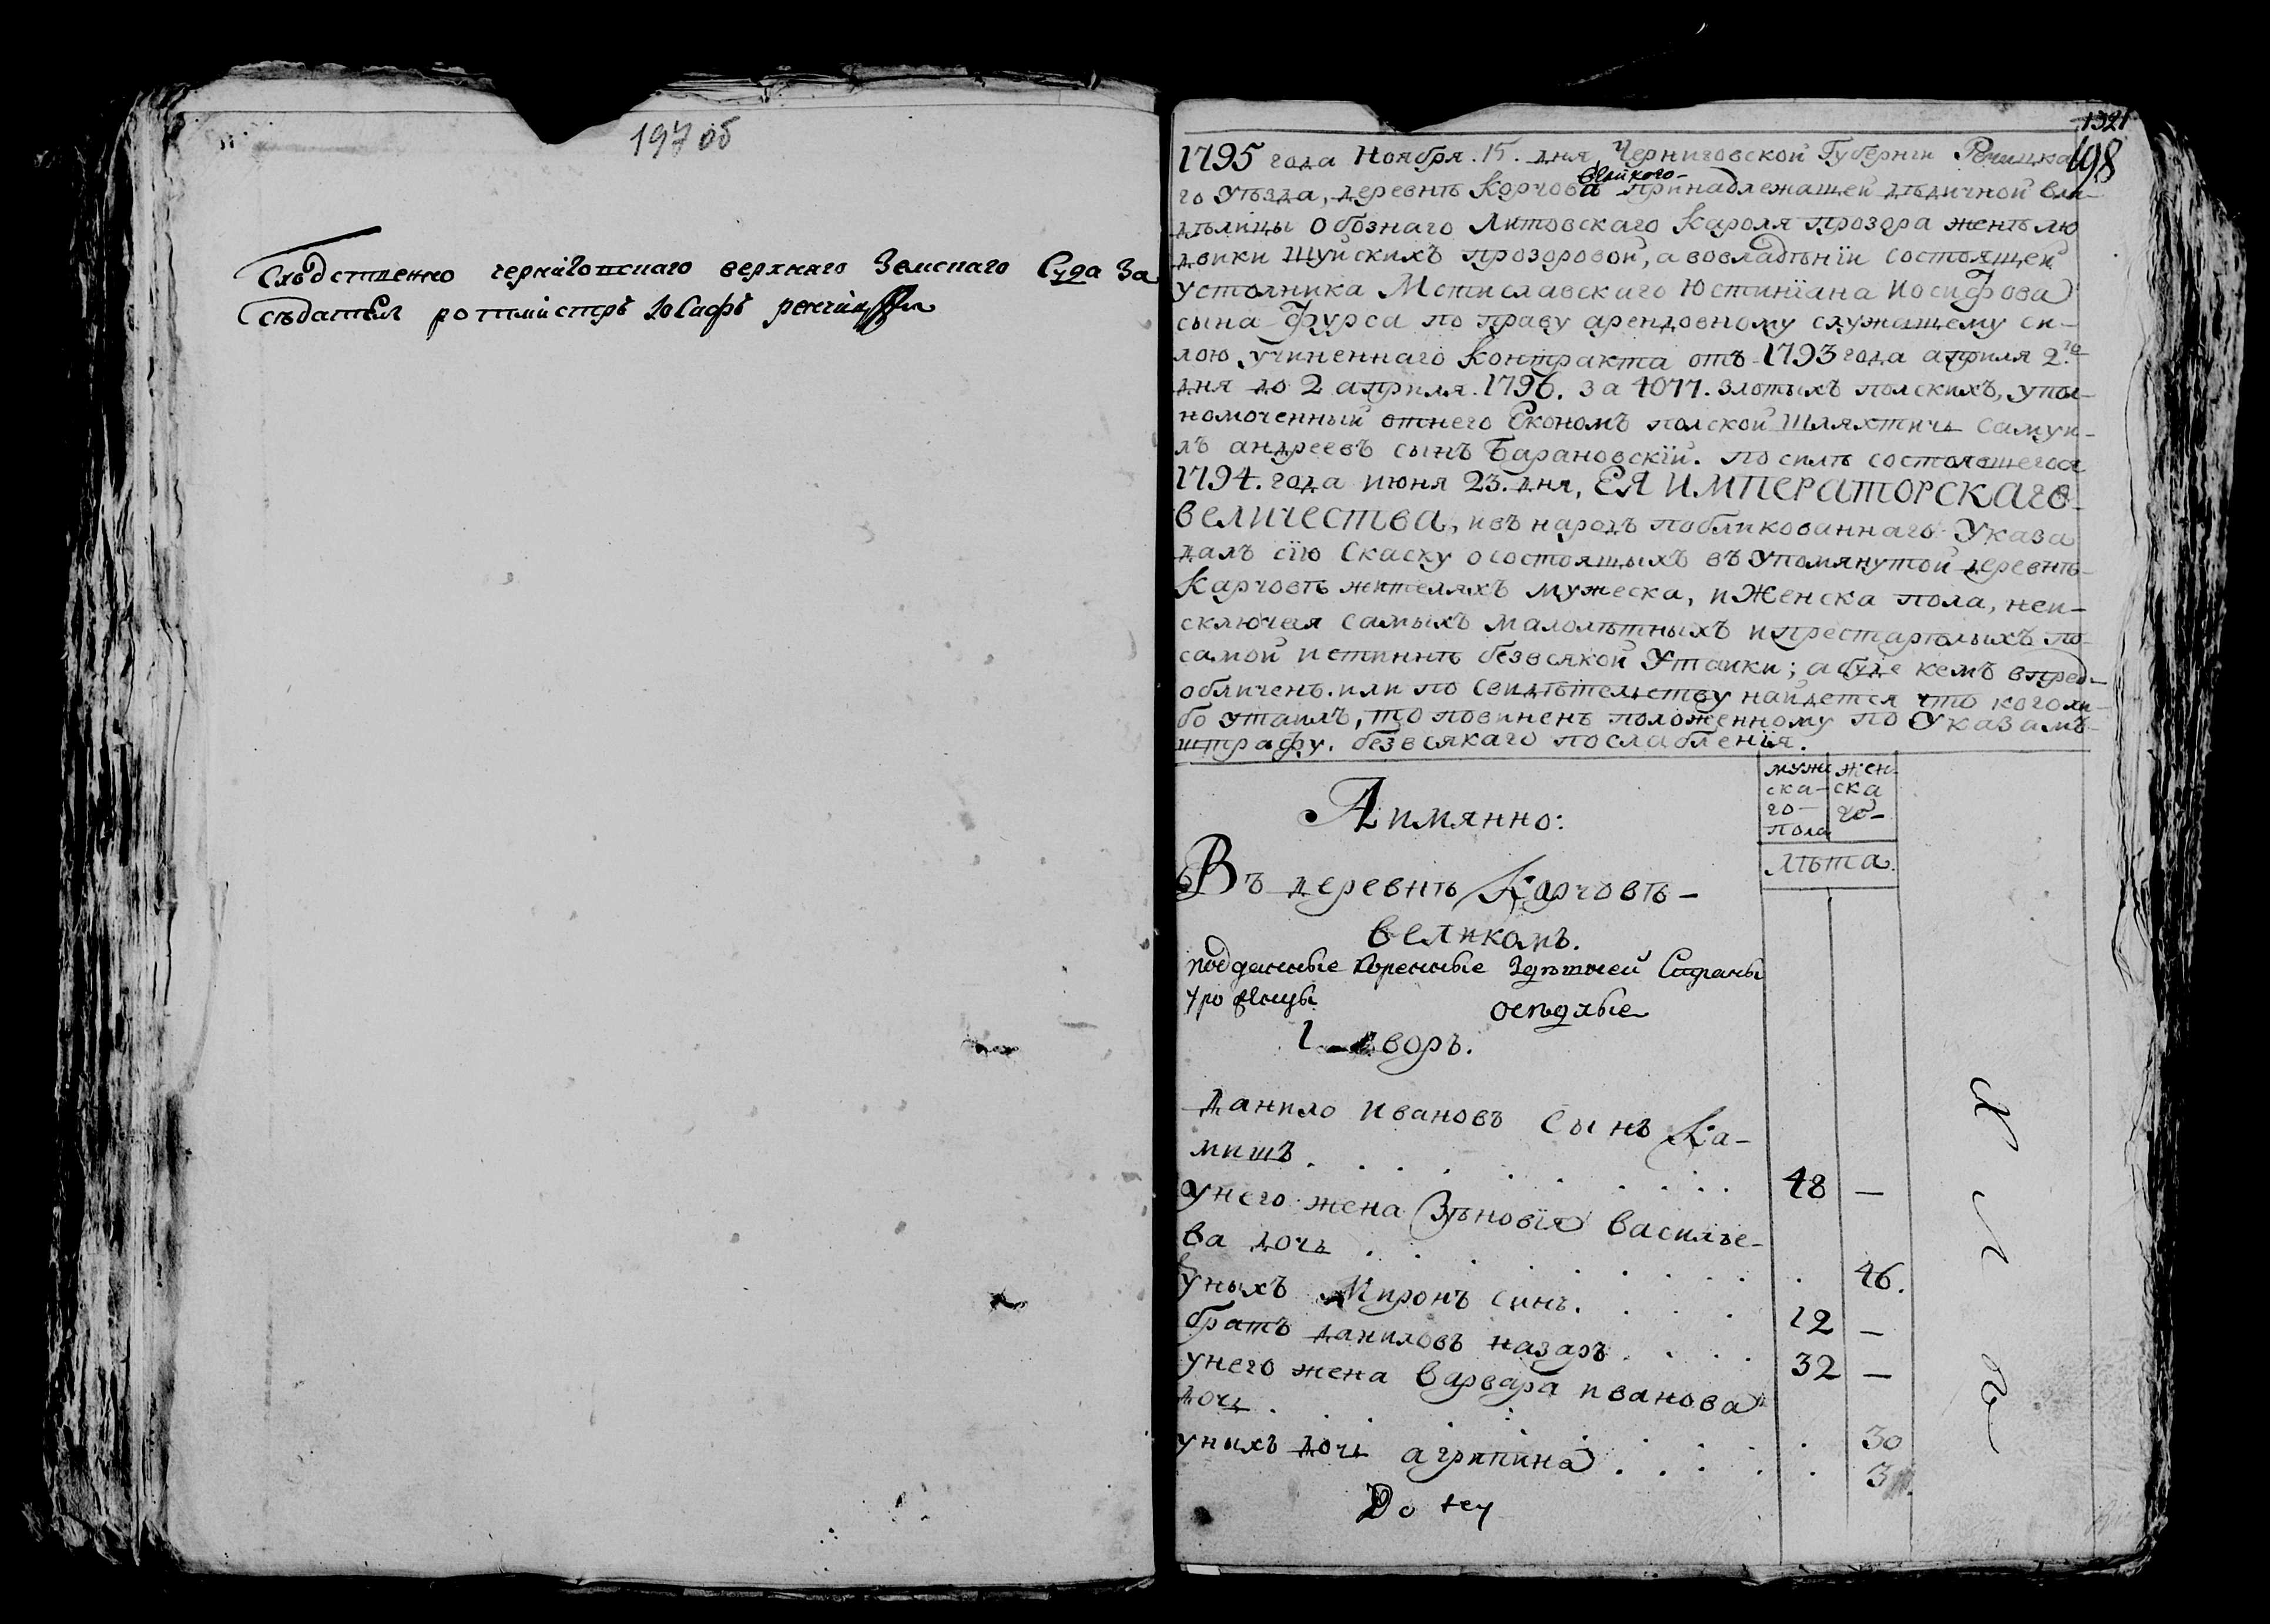 197 об
Следственно чернiговскаго верхнаго Земскаго Суда За
седатель ротмистръ Юсафъ
1321
198
1795 года Ноября. 15. дня, Черниговской Губерніи Речицка
великого
го Уѣзда, деревнѣ Корчова принадлежащей дѣдичной вла-
дѣлицы Обознаго Литовскаго Кароля прозора женѣ лю
двики Шуйскихъ прозоровой, а вовладѣніи состоящей
устолника Мстиславскаго Юстиніана Иосифова
сына Фурса по праву арендовному служащему си-
лою учиненнаго Контракта отъ 1793 года априля 2.го
дня до 2 априля. 1796. за 4077. злотыхъ полскихъ, упол-
номоченный отнего Економъ полской шляхтичъ Самуи-
лъ андреевъ сынъ Барановскій. по силѣ состоявшегося
1794. года июня 23. дня, ЕЯ ИМПЕРАТОРСКАГО
ВЕЛИЧЕСТВА, ивъ народъ побликованнаго Указа
далъ сїю Скаску осостоящыхъ въ упомянутой деревнѣ
Карчовѣ жителяхъ мужеска, иженска пола, неи-
сключая самыхъ малолѣтныхъ ипрестарѣлыхъ по
самой истиннѣ безвсякой Утайки; а буде кемъ впред-
обличенъ. или по свидѣтельству найдется что коголи-
бо утаилъ, то повиненъ положенному по Указамъ
штрафу. безвсякаго послабленія.
мужескаго пола
женскаго
лѣта.
Аимянно:
Въ деревнѣ Карчовѣ
великомъ.
подданные коренные здѣшней Страны
уроженцы оседлые
1 дворъ.
данило ивановъ сынъ Ка-
мишъ . . . . . . . . . 48 —
унего жена Зѣновія василье-
ва дочь . . . . . . . . . 46.
уныхъ Миронъ синъ. . . . 12 —
братъ даниловъ назаръ . . . . 32 —
унего жена варвара иванова
дочь . . . . . . . . . 30
уныхъ дочь агрипина . . . . . 3
Do tey